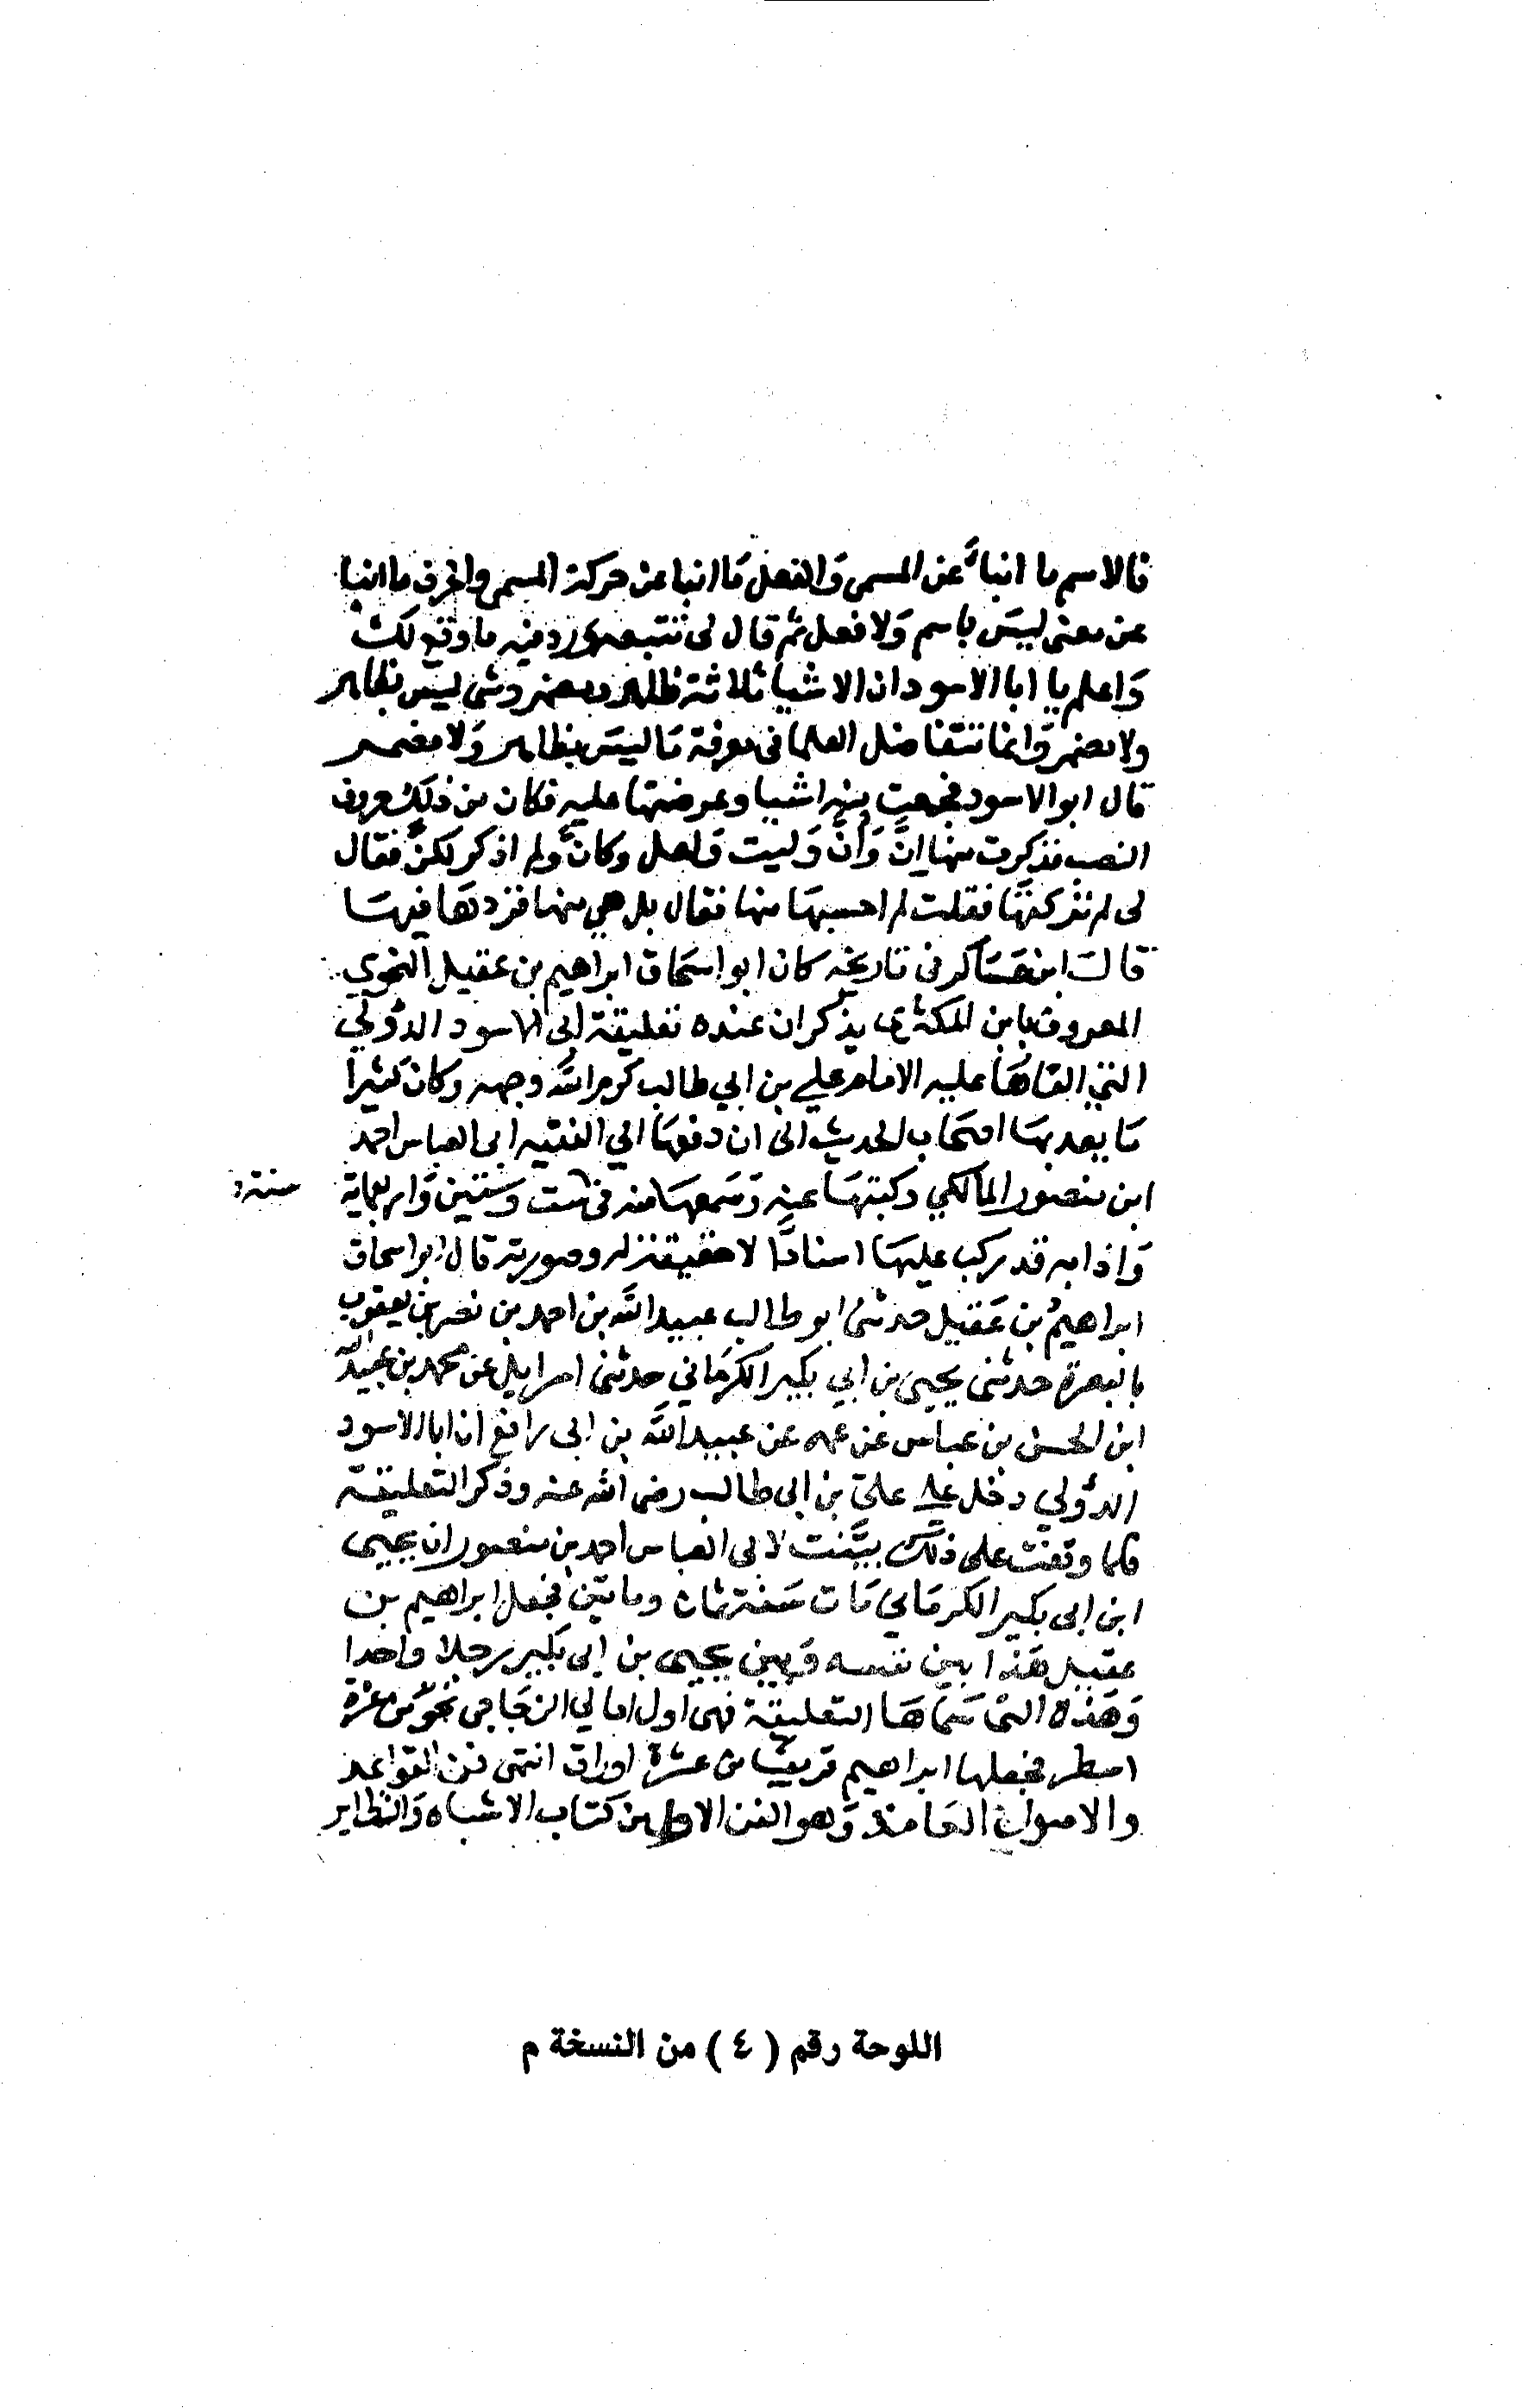 فالاسم ما انباَ عن المسمى وَالفعل مَا انبا عن حركة المسمى والحرف ما انبا
عن معنى ليسَ باسم وَلا فعل ثم قال لى تتبعه وزد فيه ما وقع لك
وَاعلم يا ابا الاسود ان الاشيا ثلاثة ظاهر ومضمر وشى ليس بظاهر
ولا مضمر وَانما تتفاضل العلما فى معرفة مَا ليسَ بظاهر وَلا مضمر
قال ابو الاسود فجمعت منه اشيا وعرضتها عليه فكان من ذلك حروف
النصب فذكرت منها إنَّ وَأنَّ وَليت وَلعل وكانَّ ولم اذكر لكنَّ فقال
لى لم تركتهَا فقلت لم احسبهَا منها فقال بل هي منها فزدهَا فيهَا
قالَ ابن عسَاكر فى تاريخه كان ابو اسحَاق ابراهيم بن عقيل النحوي
المعروف بابن المكبرى يذكر ان عنده تعليقة ابى الاسود الدؤلي
التي القاهَا عليه الامام علي بن ابي طالب كرم اللّه وجهه وكان كثيرا
مَا يعد بهَا اصحَاب الحديث الى ان دفعهَا الي الفقيه ابى العباس احمد
ابن منصور المالكي وكتبهَا عنه وَسَمعهَا منه فى ست وَستين وَاربعماية
سنة
وَاذا به قد ركب عليهَا اسنادًا لا حقيقة له وصورته قال ابو اسحاق
ابراهيمُ بن عَقيل حدثنى ابو طالب عبيد اللَّه بن احمد بن نصر بن يعقوب
بالبصرة حدثنى يحيى بن ابي بكير الكرمَاني حدثنى اسرايل عن محمد بن عبيد اللّه
ابن الحسن بن عباس عن عمه عن عبيد اللّه بن ابى رافع ان ابا الاسود
الدؤلي دخل على عليّ بن ابى طالب رضى الله عنه وذكر التعليقة
فلما وقفت على ذلك بيَّنت لابى العباس احمد بن منصور ان يحيى
ابن ابى بكير الكرمَاني مَات سَنة ثمان ومايتين فجعل ابراهيم بن
عقيل هَذا بين نفسه وَبين يحيى بن ابى بَكير رجلا واحدا
وَهَذه التى سَمَّاهَا التعليقة فهى اول امالي الزجَاجى نحوٌ من عشرة
اسطر فجعلها ابراهيم قريبًا من عشرة اوراق انتهى فن القواعد
والاصول العَامة وَهو الفن الاول من كتاب الاشباه وَالنظاير
اللوحة رقم ( ٤ ) من النسخة م